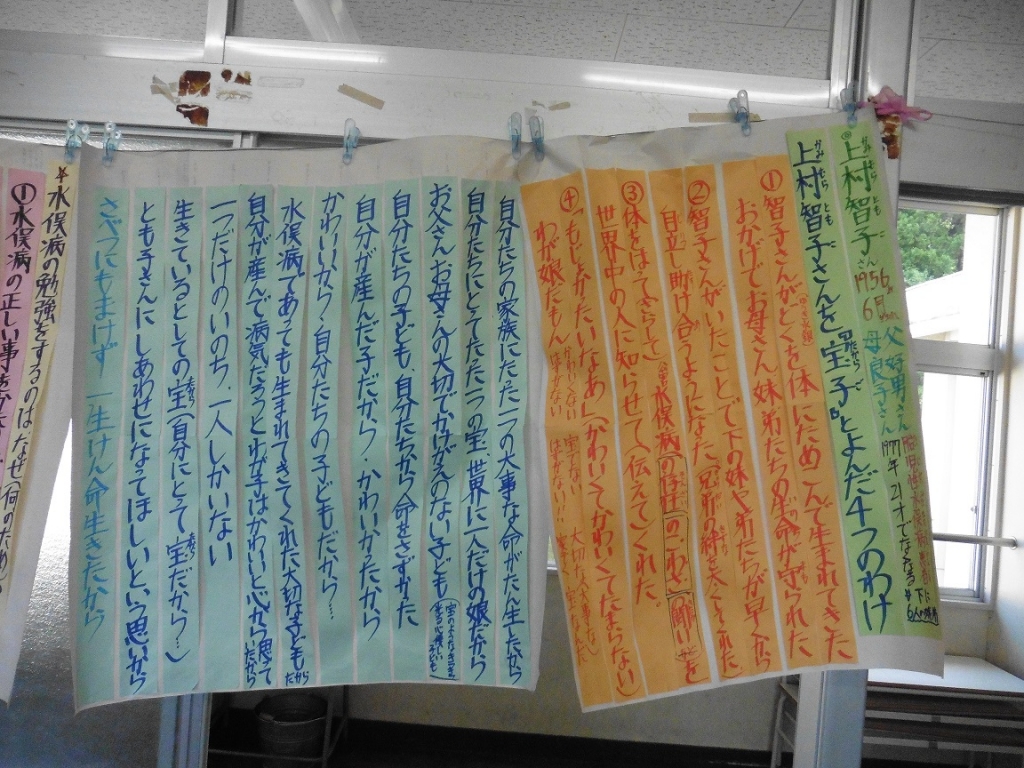 上村智子さん 1956. 6月 父 好男さん 母 良子さん 1977年 21才でなくなる
上村智子さんを“宝子”とよんだ4つのわけ
①智子さんがどくを体にため、んで生まれてきた
おかげでお母さん妹弟たちの生命が守られた
②智子さんがいたことで下の妹やおとうとたちが早くから
自立し助け合うようになった(兄弟の絆を太くしてくれた)
③体をはって(さらして)水俣病のこわさ、醜いを
世界中の人に知らせて(伝えて)くれた。
④「もじょかったいなあ」(かわいくてかわいくてたまらない)
わが娘だもん
自分たちの家族にたった一つの大事な命がたん生したから
自分たちにとってたった一つの宝、世界に一人だけの娘だから
お父さんお母さんの大切でかけがえのない子ども
自分たちの子ども、自分たちから命をさずかった
自分が産んだ子だから、かわいかったから
かわいいから、自分たちの子どもだから…
水俣病であっても生まれてきてくれた大切な子どもだから
自分が産んで病気だろうとわが子はかわいいと心から思ってたから
一つだけのいのち、一人しかいない
生きているとしての宝(自分にとって宝だから…)
とも子さんにしあわせになってほしいという思いから
さべつにもまけず 一生けん命生きたから
水俣病の勉強をするのはなぜ(何のため)
①水俣病の正しい事